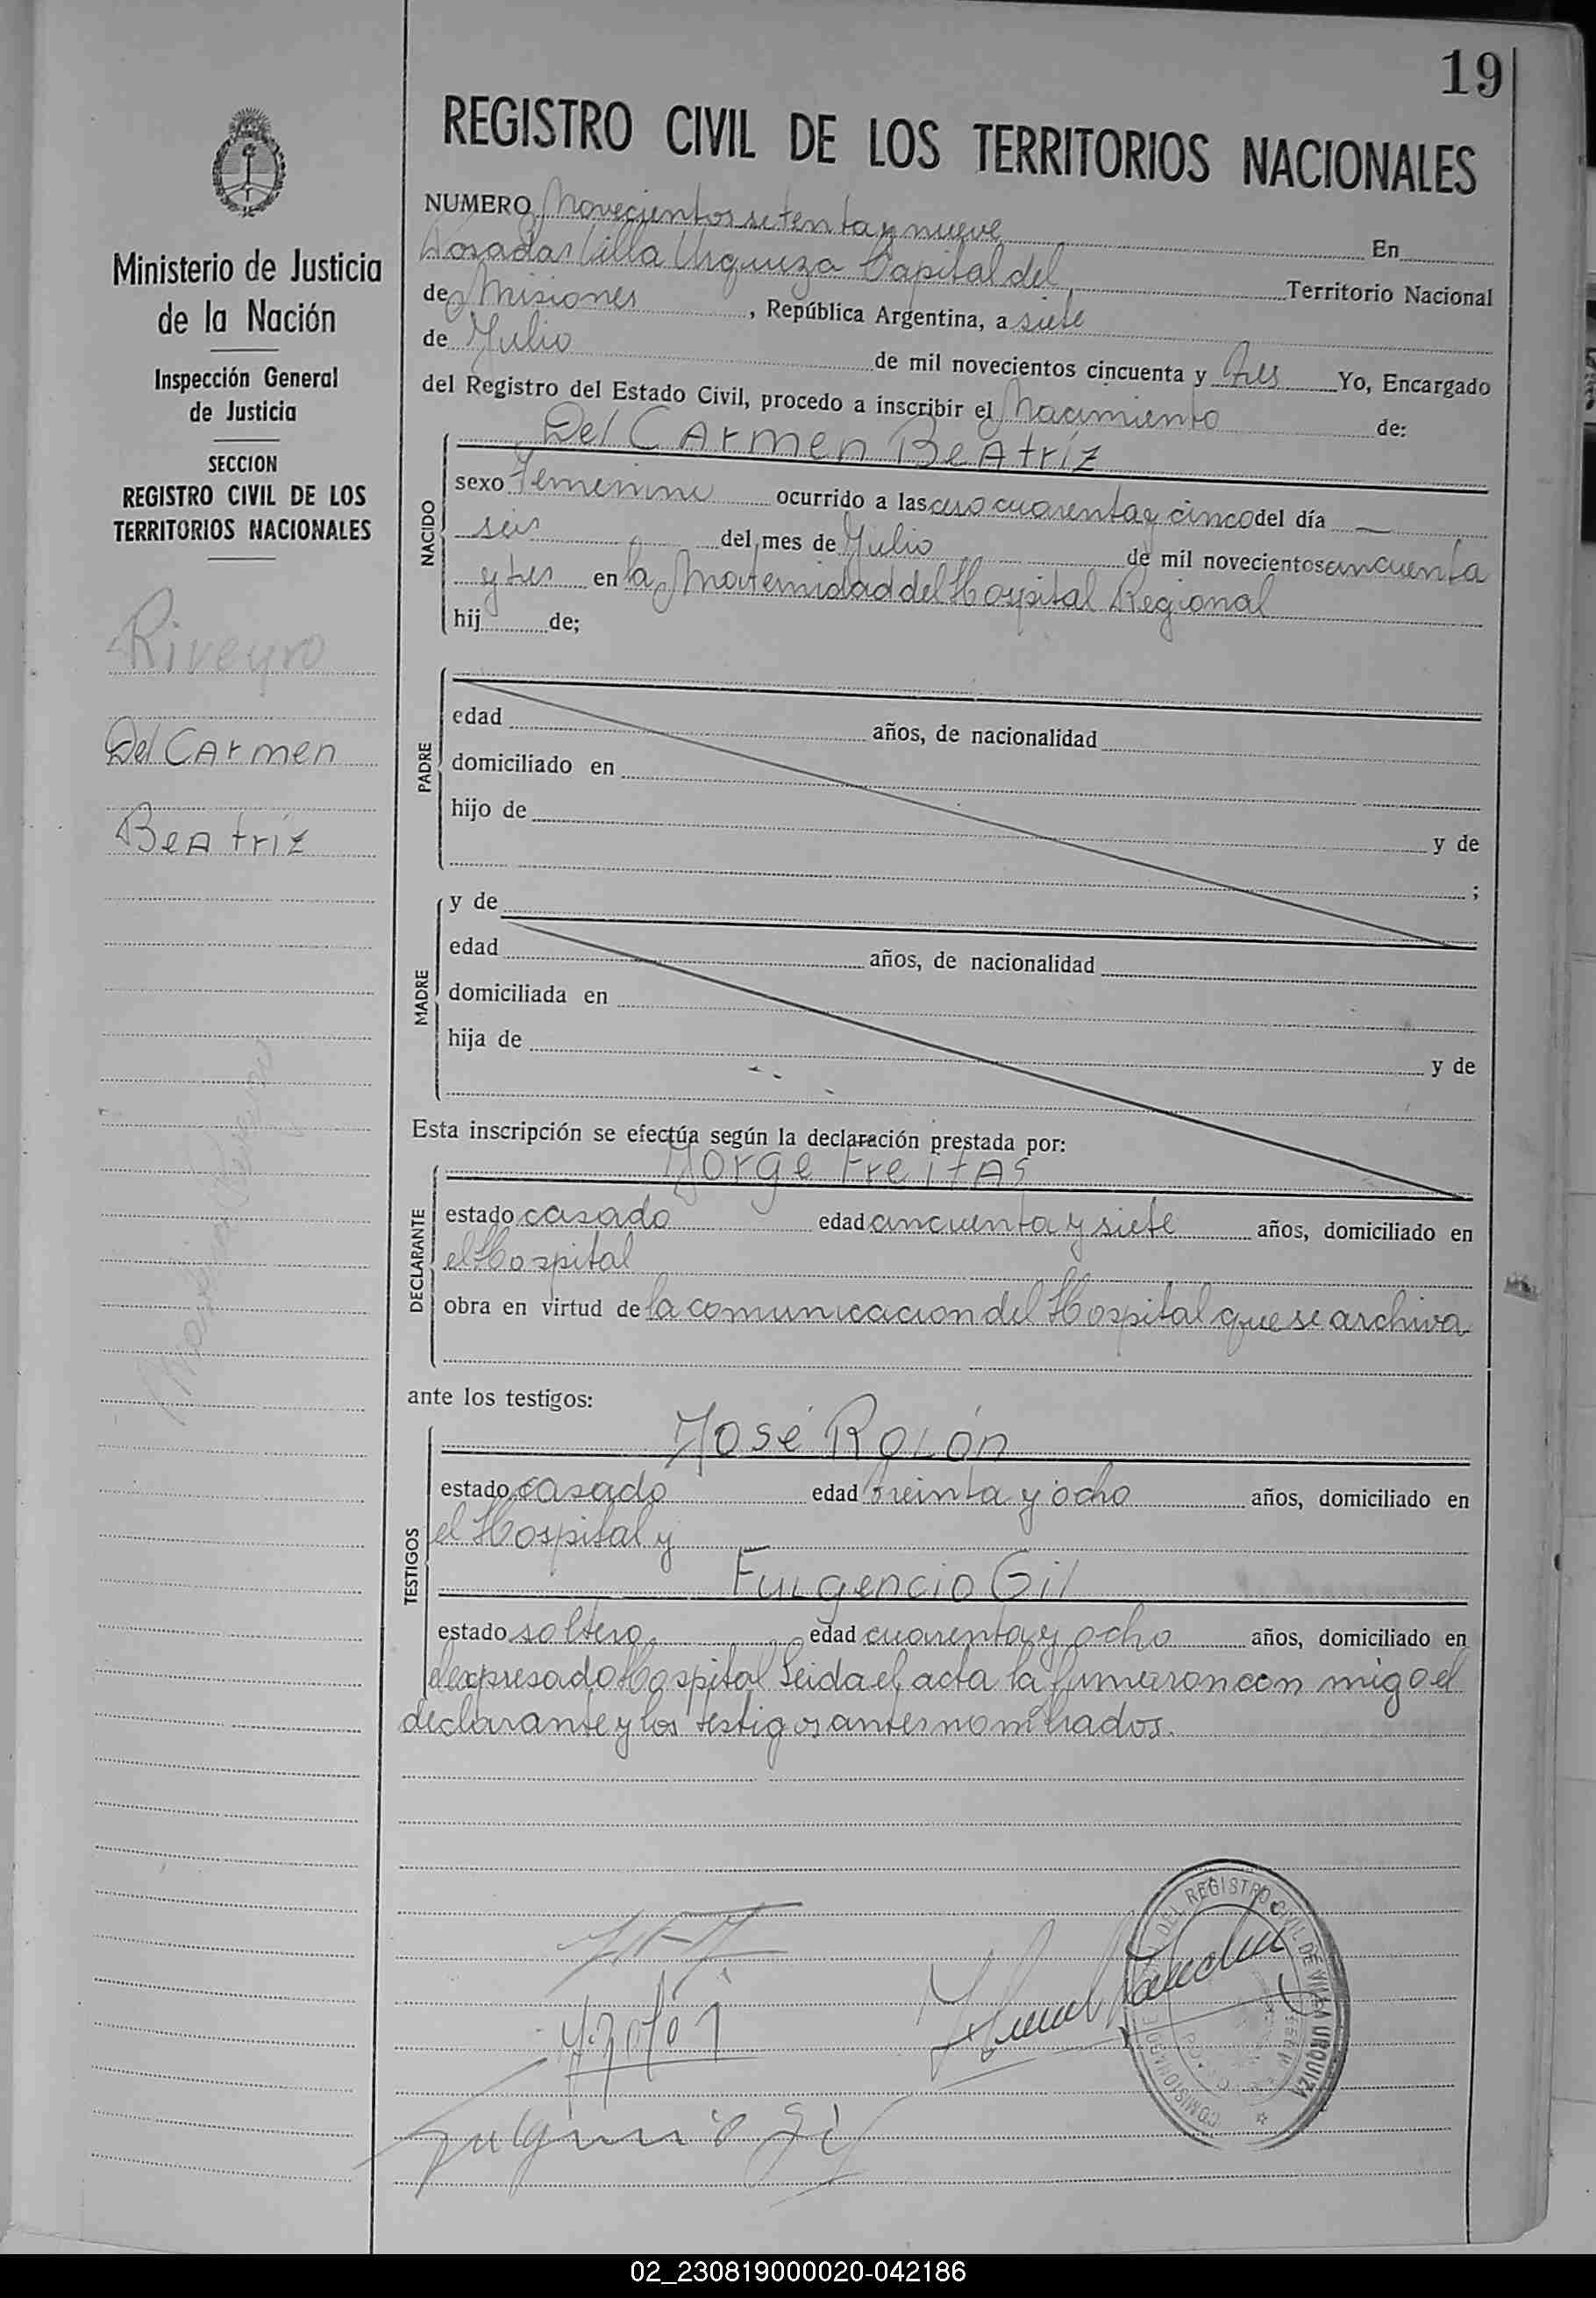 19
REGISTRO CIVIL DE LOS TERRITORIOS NACIONALES
Ministerio de Justicia
de la Nación
Inspección General
de Justicia
SECCION
REGISTRO CIVIL DE LOS
TERRITORIOS NACIONALES
Riveyro
Del Carmen
Beatríz
NUMERO Novecientos setenta y nueve En
Posadas Villa Urquiza Capital del Territorio Nacional
de Misiones, República Argentina, a siete
de Julio de mil novecientos cincuenta y tres Yo, Encargado
del Registro del Estado Civil, procedo a inscribir el Nacimiento de:
NACIDO
Del Carmen Beatríz
sexo Femenino ocurrido a las cero cuarenta y cinco del día —
seis del mes de Julio de mil novecientos cincuenta
y tres en la Maternidad del Hospital Regional
hij de;
PADRE
edad años, de nacionalidad
domiciliado en
hijo de y de
;
MADRE
y de
edad años, de nacionalidad
domiciliada en
hija de y de
Esta inscripción se efectúa según la declaración prestada por:
DECLARANTE
Jorge Freitas
estado casado edad cincuenta y siete años, domiciliado en
el Hospital
obra en virtud de la comunicacion del Hospital que se archiva
ante los testigos:
TESTIGOS
José Rolón
estado casado edad treinta y ocho años, domiciliado en
el Hospital y
Fulgencio Gil
estado soltero edad cuarenta y ocho años, domiciliado en
el expresado Hospital Leida el acta la firmaron con migo el
declarante y los testigos antes nombrados.
J. Rolón
Fulgencio Gil
DEL REGISTRO CIVIL DE VILLA URQUIZA
02_230819000020-042186